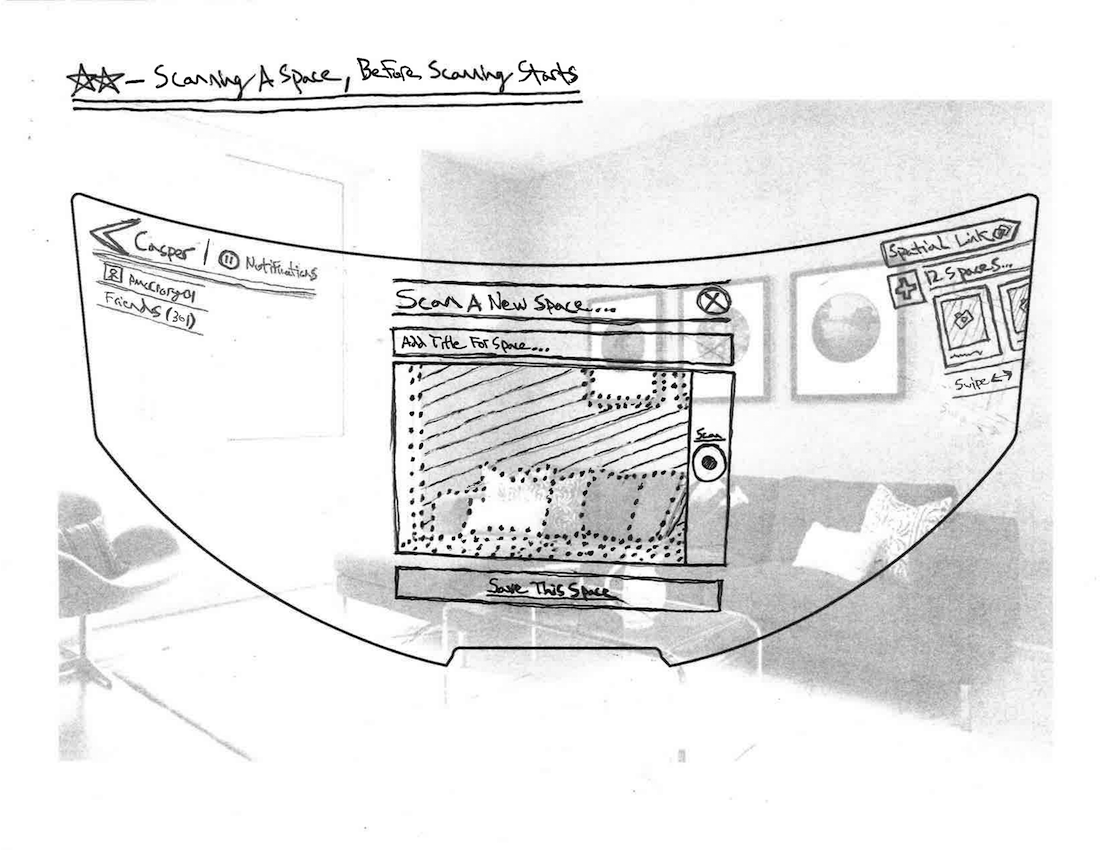 ☆☆ – Scanning A Space, Before Scanning Starts
Casper | Notifications
Friends (301)
Scan A New Space...
Add Title For Space...
Scan
Save This Space
Spatial Link
12 Spaces...
Swipe ↔